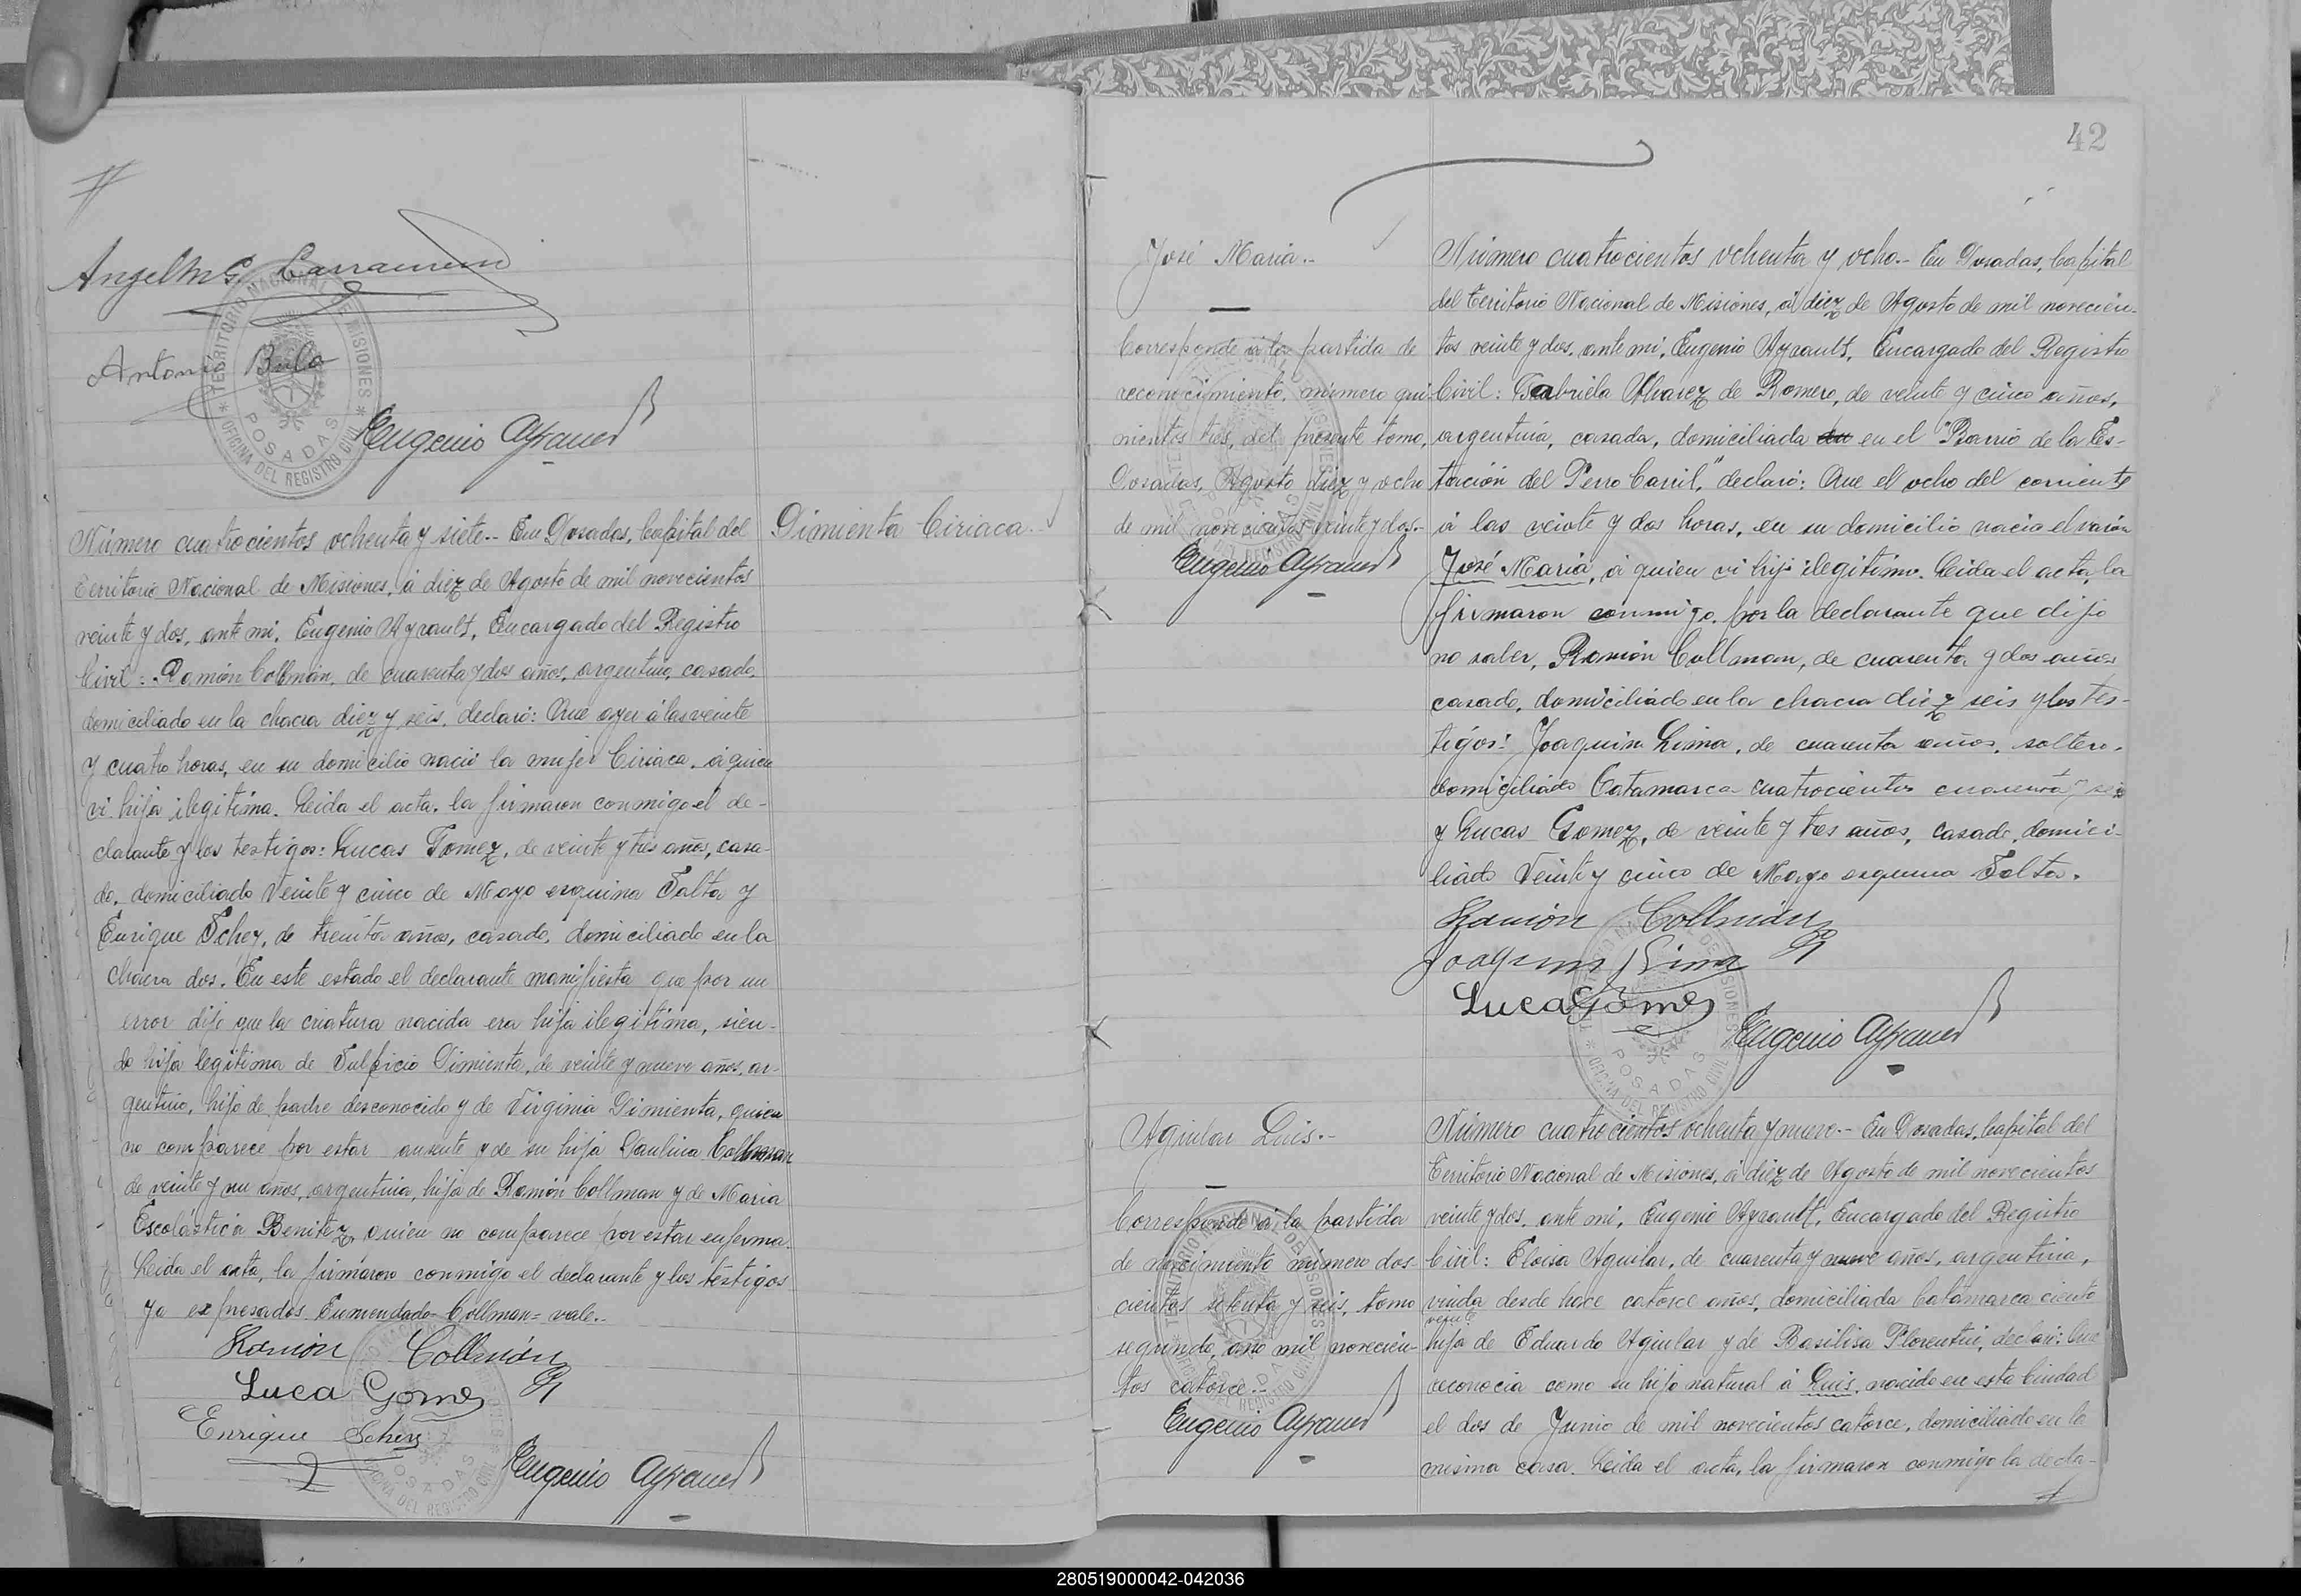 Antonio
Eugenio Ayrault
TERRITORIO NACIONAL DE MISIONES
OFICINA DEL REGISTRO CIVIL
POSADAS
Número cuatrocientos ochenta y siete.- En Posadas, Capital del
Territorio Nacional de Misiones, á diez de Agosto de mil novecientos
veinte y dos, ante mi, Eugenio Ayrault, Encargado del Registro
Civil: Ramón Collman, de cuarenta y dos años, argentino, casado,
domiciliado en la chacra diez y seis, declaró: Que ayer á las veinte
y cuatro horas, en su domicilio nació la mujer Ciriaca, á quien
vi hija ilegitima. Leida el acta, la firmaron conmigo el de-
clarante y los testigos: Lucas Gomez, de veinte y tres años, casa-
do, domiciliado Veinte y cinco de Mayo esquina Salta y
Enrique Schey, de treinta años, casado, domiciliado en la
chacra dos. En este estado el declarante manifiesta que por un
error dijo que la criatura nacida era hija ilegitima, sien-
do hija legitima de Sulpicio Pimienta, de veinte y nueve años, ar-
gentino, hijo de padre desconocido y de Virginia Pimienta, quien
no comparece por estar ausente y de su hija Paulina Collman
de veinte y un años, argentina, hija de Ramón Collman y de Maria
Escolástica Benitez, quien no comparece por estar enferma.
Leida el acta, la firmaron conmigo el declarante y los testigos
ya expresados. Enmendado-Collman=vale.-
Ramón Collmán
Luca Gomes
Enrique
Eugenio Ayrault
Pimienta Ciriaca.-
42
José Maria.-
Corresponde á la partida de
reconocimiento, número qui-
nientos tres, del presente tomo,
Posadas, Agosto diez y ocho
de mil novecientos veinte y dos.-
Eugenio Ayrault
Número cuatrocientos ochenta y ocho.- En Posadas, Capital
del Territorio Nacional de Misiones, á diez de Agosto de mil novecien-
tos veinte y dos, ante mi, Eugenio Ayrault, Encargado del Registro
Civil: Gabriela Alvarez de Romero, de veinte y cinco años,
argentina, casada, domiciliada en el "Barrio de la Es-
tación del Ferro Carril," declaró: Que el ocho del corriente
á las veinte y dos horas, en su domicilio nacia el varón
José Maria, á quien vi hijo ilegitimo. Leida el acta, la
firmaron conmigo, por la declarante que dijo
no saber, Ramón Collman, de cuarenta y dos años
casado, domiciliado en la chacra diez seis y los tes-
tigos: Joaquin Lima, de cuarenta años, soltero,
domiciliado Catamarca cuatrocientos cuarenta y seis
y Lucas Gomez, de veinte y tres años, casado, domici-
liado Veinte y cinco de Mayo esquina Salta.
Ramón Collmán
Joaquin Lima
Luca Gomes
Eugenio Ayrault
Aguilar Luis.-
Corresponde á la partida
de nacimiento número dos-
cientos setenta y seis, tomo
segundo, año mil novecien-
tos catorce.-
Eugenio Ayrault
Número cuatrocientos ochenta y nueve.- En Posadas, Capital del
Territorio Nacional de Misiones, á diez de Agosto de mil novecientos
veinte y dos, ante mi, Eugenio Ayrault, Encargado del Registro
Civil: Eloisa Aguilar, de cuarenta y nueve años, argentina,
viuda desde hace catorce años, domiciliada Catamarca ciento
veinte
hija de Eduardo Aguilar y de Basilisa Florentin, declaró: Que
reconocia como su hijo natural á Luis, nacido en esta Ciudad
el dos de Junio de mil novecientos catorce, domiciliado en la
misma casa. Leida el acta, la firmaron conmigo la decla-
280519000042-042036